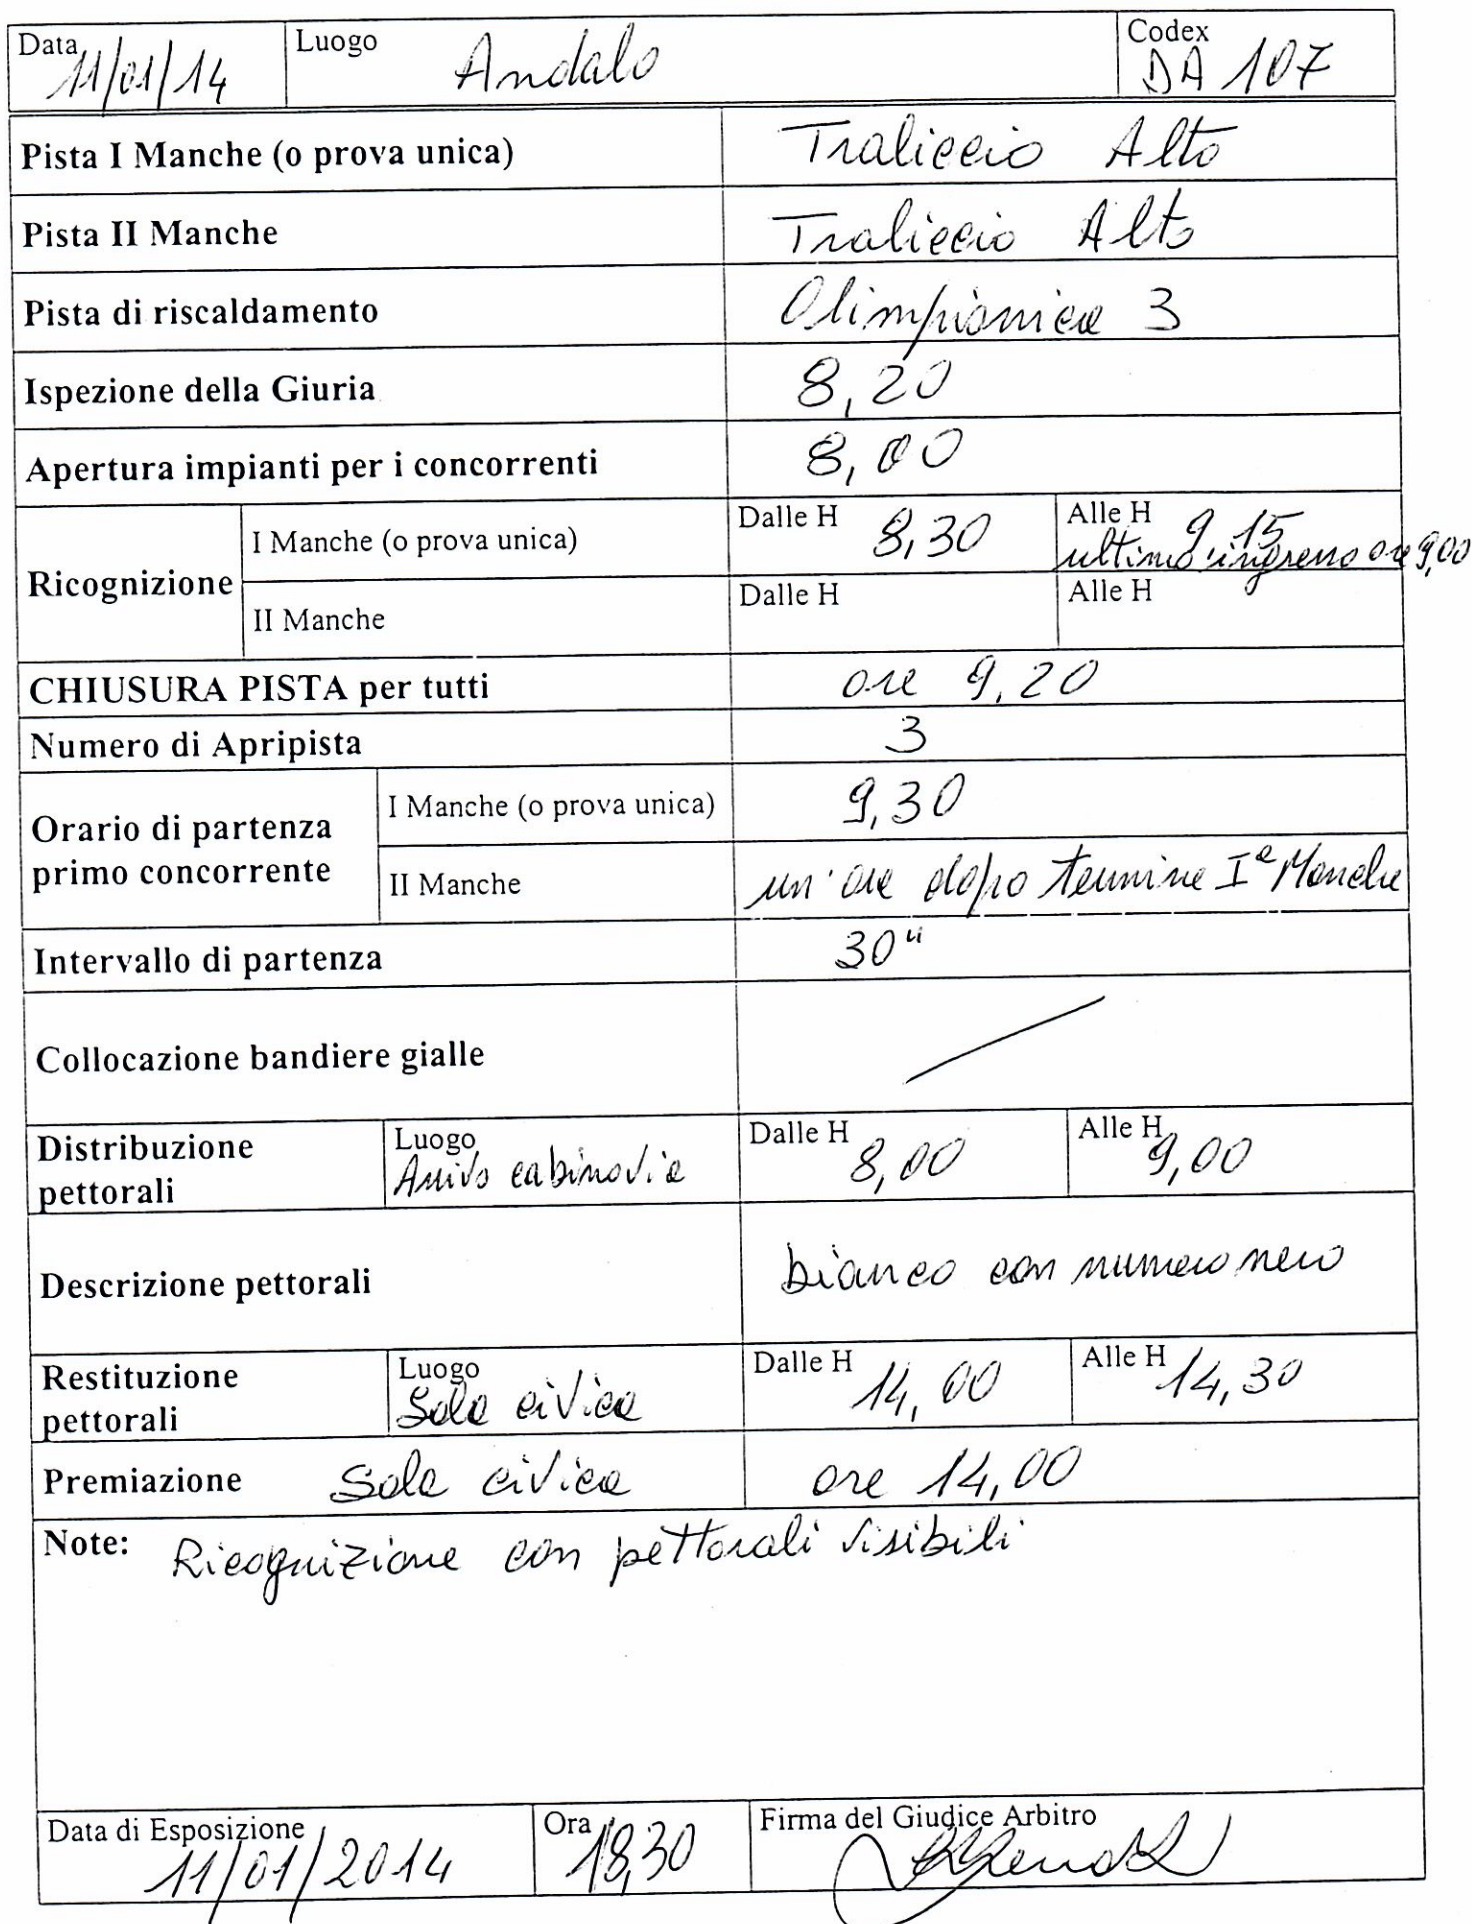 Data Luogo Codex
11/01/14 Andalo DA 107
Pista I Manche (o prova unica) Traliccio Alto
Pista II Manche Traliccio Alto
Pista di riscaldamento Olimpionica 3
Ispezione della Giuria 8,20
Apertura impianti per i concorrenti 8,00
Ricognizione
I Manche (o prova unica) Dalle H 8,30 Alle H 9 15
ultimo ingresso ore 9,00
II Manche Dalle H Alle H
CHIUSURA PISTA per tutti ore 9,20
Numero di Apripista 3
Orario di partenza
primo concorrente
I Manche (o prova unica) 9,30
II Manche un'ora dopo termine Iª Manche
Intervallo di partenza 30"
Collocazione bandiere gialle
Distribuzione
pettorali
Luogo
Arrivo cabinovia
Dalle H 8,00 Alle H 9,00
Descrizione pettorali bianco con numero nero
Restituzione
pettorali
Luogo
Sala civica
Dalle H 14,00 Alle H 14,30
Premiazione Sala civica ore 14,00
Note: Ricognizione con pettorali visibili
Data di Esposizione Ora Firma del Giudice Arbitro
11/01/2014 18,30